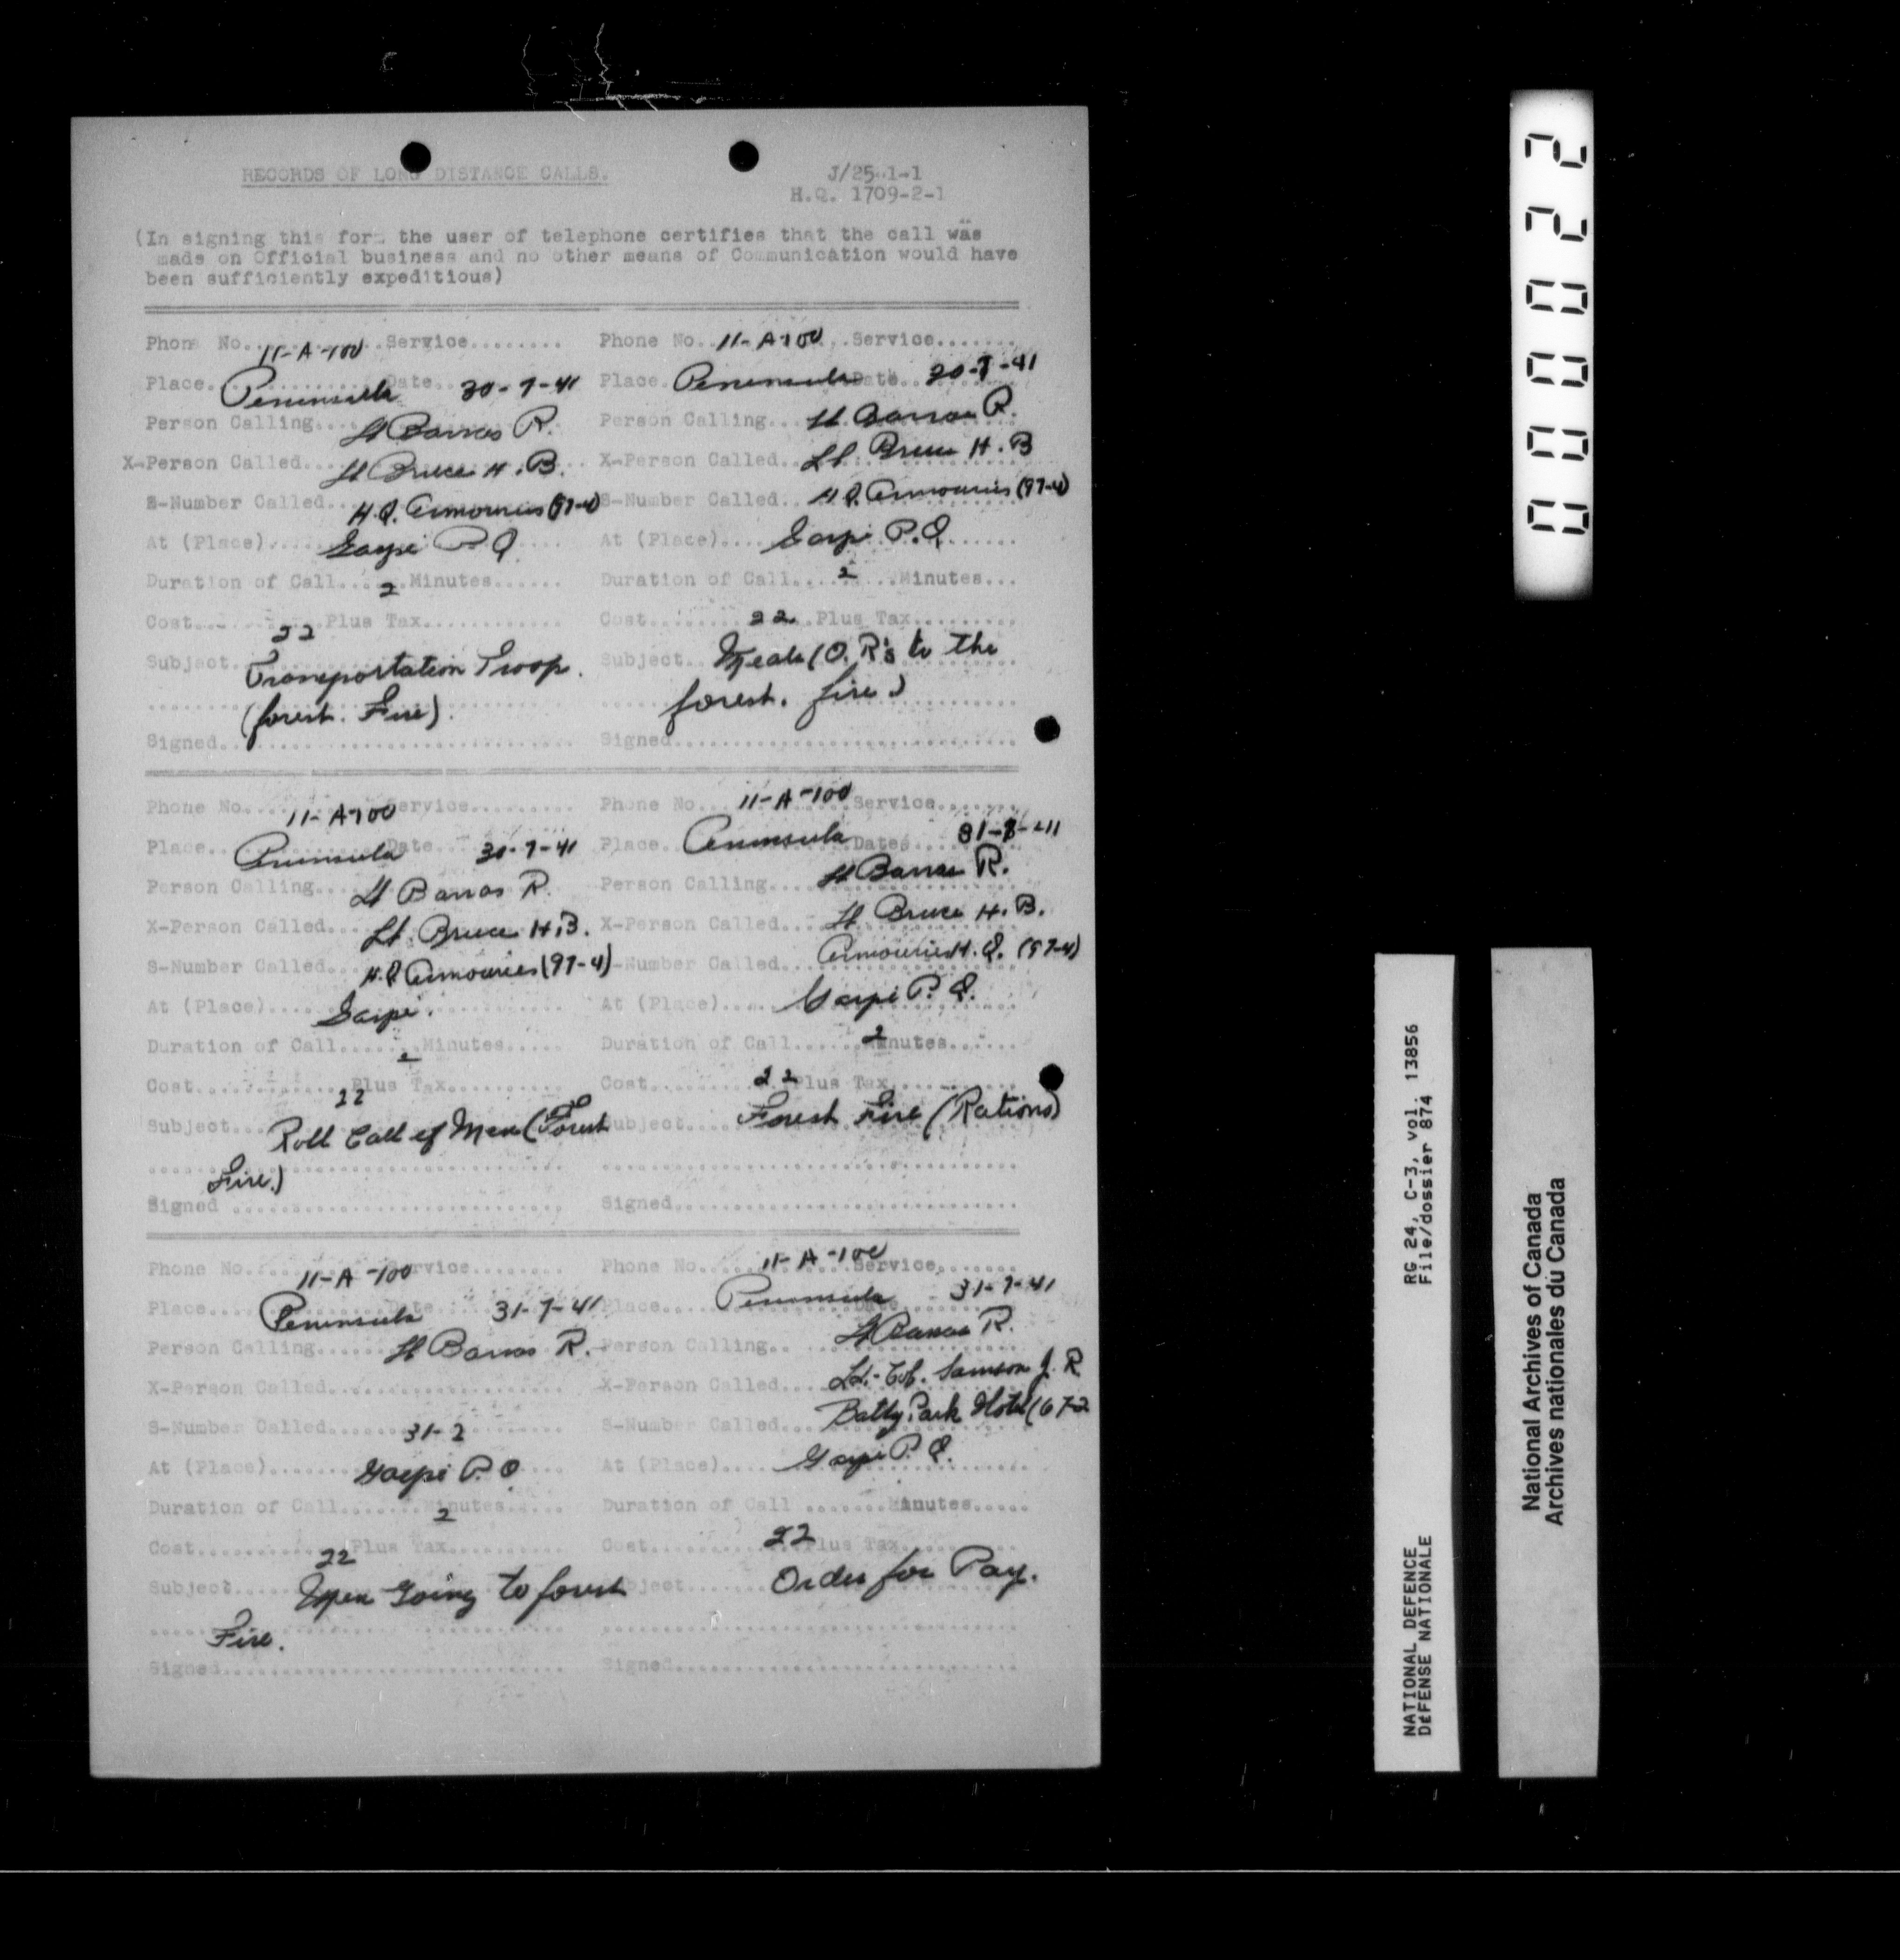 RECORDS OF LONG DISTANCE CALLS.
J/25-1-1
H.Q. 1709-2-1
(In signing this form the user of telephone certifies that the call was
made on Official business and no other means of Communication would have
been sufficiently expeditious)
Phone No. 11-A-100 Service........
Place. Peninsula Date. 30-7-41
Person Calling.... Lt Barras R.
X-Person Called.... Lt Bruce H.B.
S-Number Called.... H.Q. Armouries (97-4)
At (Place).... Gaspé P.Q
Duration of Call.... 2 Minutes......
Cost.... 22 Plus Tax............
Subject. Transportation Troop.
(forest. Fire).
Signed..............................
Phone No. 11-A-100 Service.......
Place. Peninsula Date. 30-7-41
Person Calling.. Lt Barras R.
X-Person Called.. Lt Bruce H.B
S-Number Called.. H.Q. Armouries (97-4)
At (Place).... Gaspé P.Q
Duration of Call.... 2 Minutes...
Cost........ 22 Plus Tax.........
Subject. Meals (O.R's to the
forest. fire)
Signed..............................
Phone No. 11-A-100 Service.........
Place.. Peninsula Date. 30-7-41
Person Calling.... Lt Barras R.
X-Person Called.. Lt. Bruce H.B.
S-Number Called.. H.Q Armouries (97-4)
At (Place).... Gaspé.
Duration of Call....... Minutes.....
Cost........ 22 Plus Tax..........
Subject.. Roll Call of Men (Forest
Fire.)
Signed ............................
Phone No.. 11-A-100 Service.......
Place. Peninsula Date. 31-7-41
Person Calling.... Lt Barras R.
X-Person Called.... Lt Bruce H.B.
S-Number Called... Armouries H.Q. (97-4)
At (Place).... Gaspé P.Q.
Duration of Call..... 2 Minutes......
Cost........ 22 Plus Tax.........
Subject... Forest Fire (Rations)
Signed..............................
Phone No... 11-A-100 Service........
Place.. Peninsula Date 31-7-41
Person Calling...... Lt Barras R.
X-Person Called....................
S-Number Called...... 31-2
At (Place)...... Gaspé P.Q
Duration of Call...... 2 Minutes.....
Cost........ 22 Plus Tax..........
Subject... Men Going to forest
Fire.
Signed..............................
Phone No... 11-A-100 Service.......
Place... Peninsula Date 31-7-41
Person Calling.. Lt Barras R.
X-Person Called.... Lt.-Col. Samson J.R
S-Number Called.... Park Hotel (67-2
At (Place).... Gaspé P.Q.
Duration of Call .......Minutes.....
Cost........ 22 Plus Tax........
Subject..... Order for Pay.
Signed..............................
000022
RG 24, C-3, vol. 13856
File/dossier 874
NATIONAL DEFENCE
DÉFENSE NATIONALE
National Archives of Canada
Archives nationales du Canada